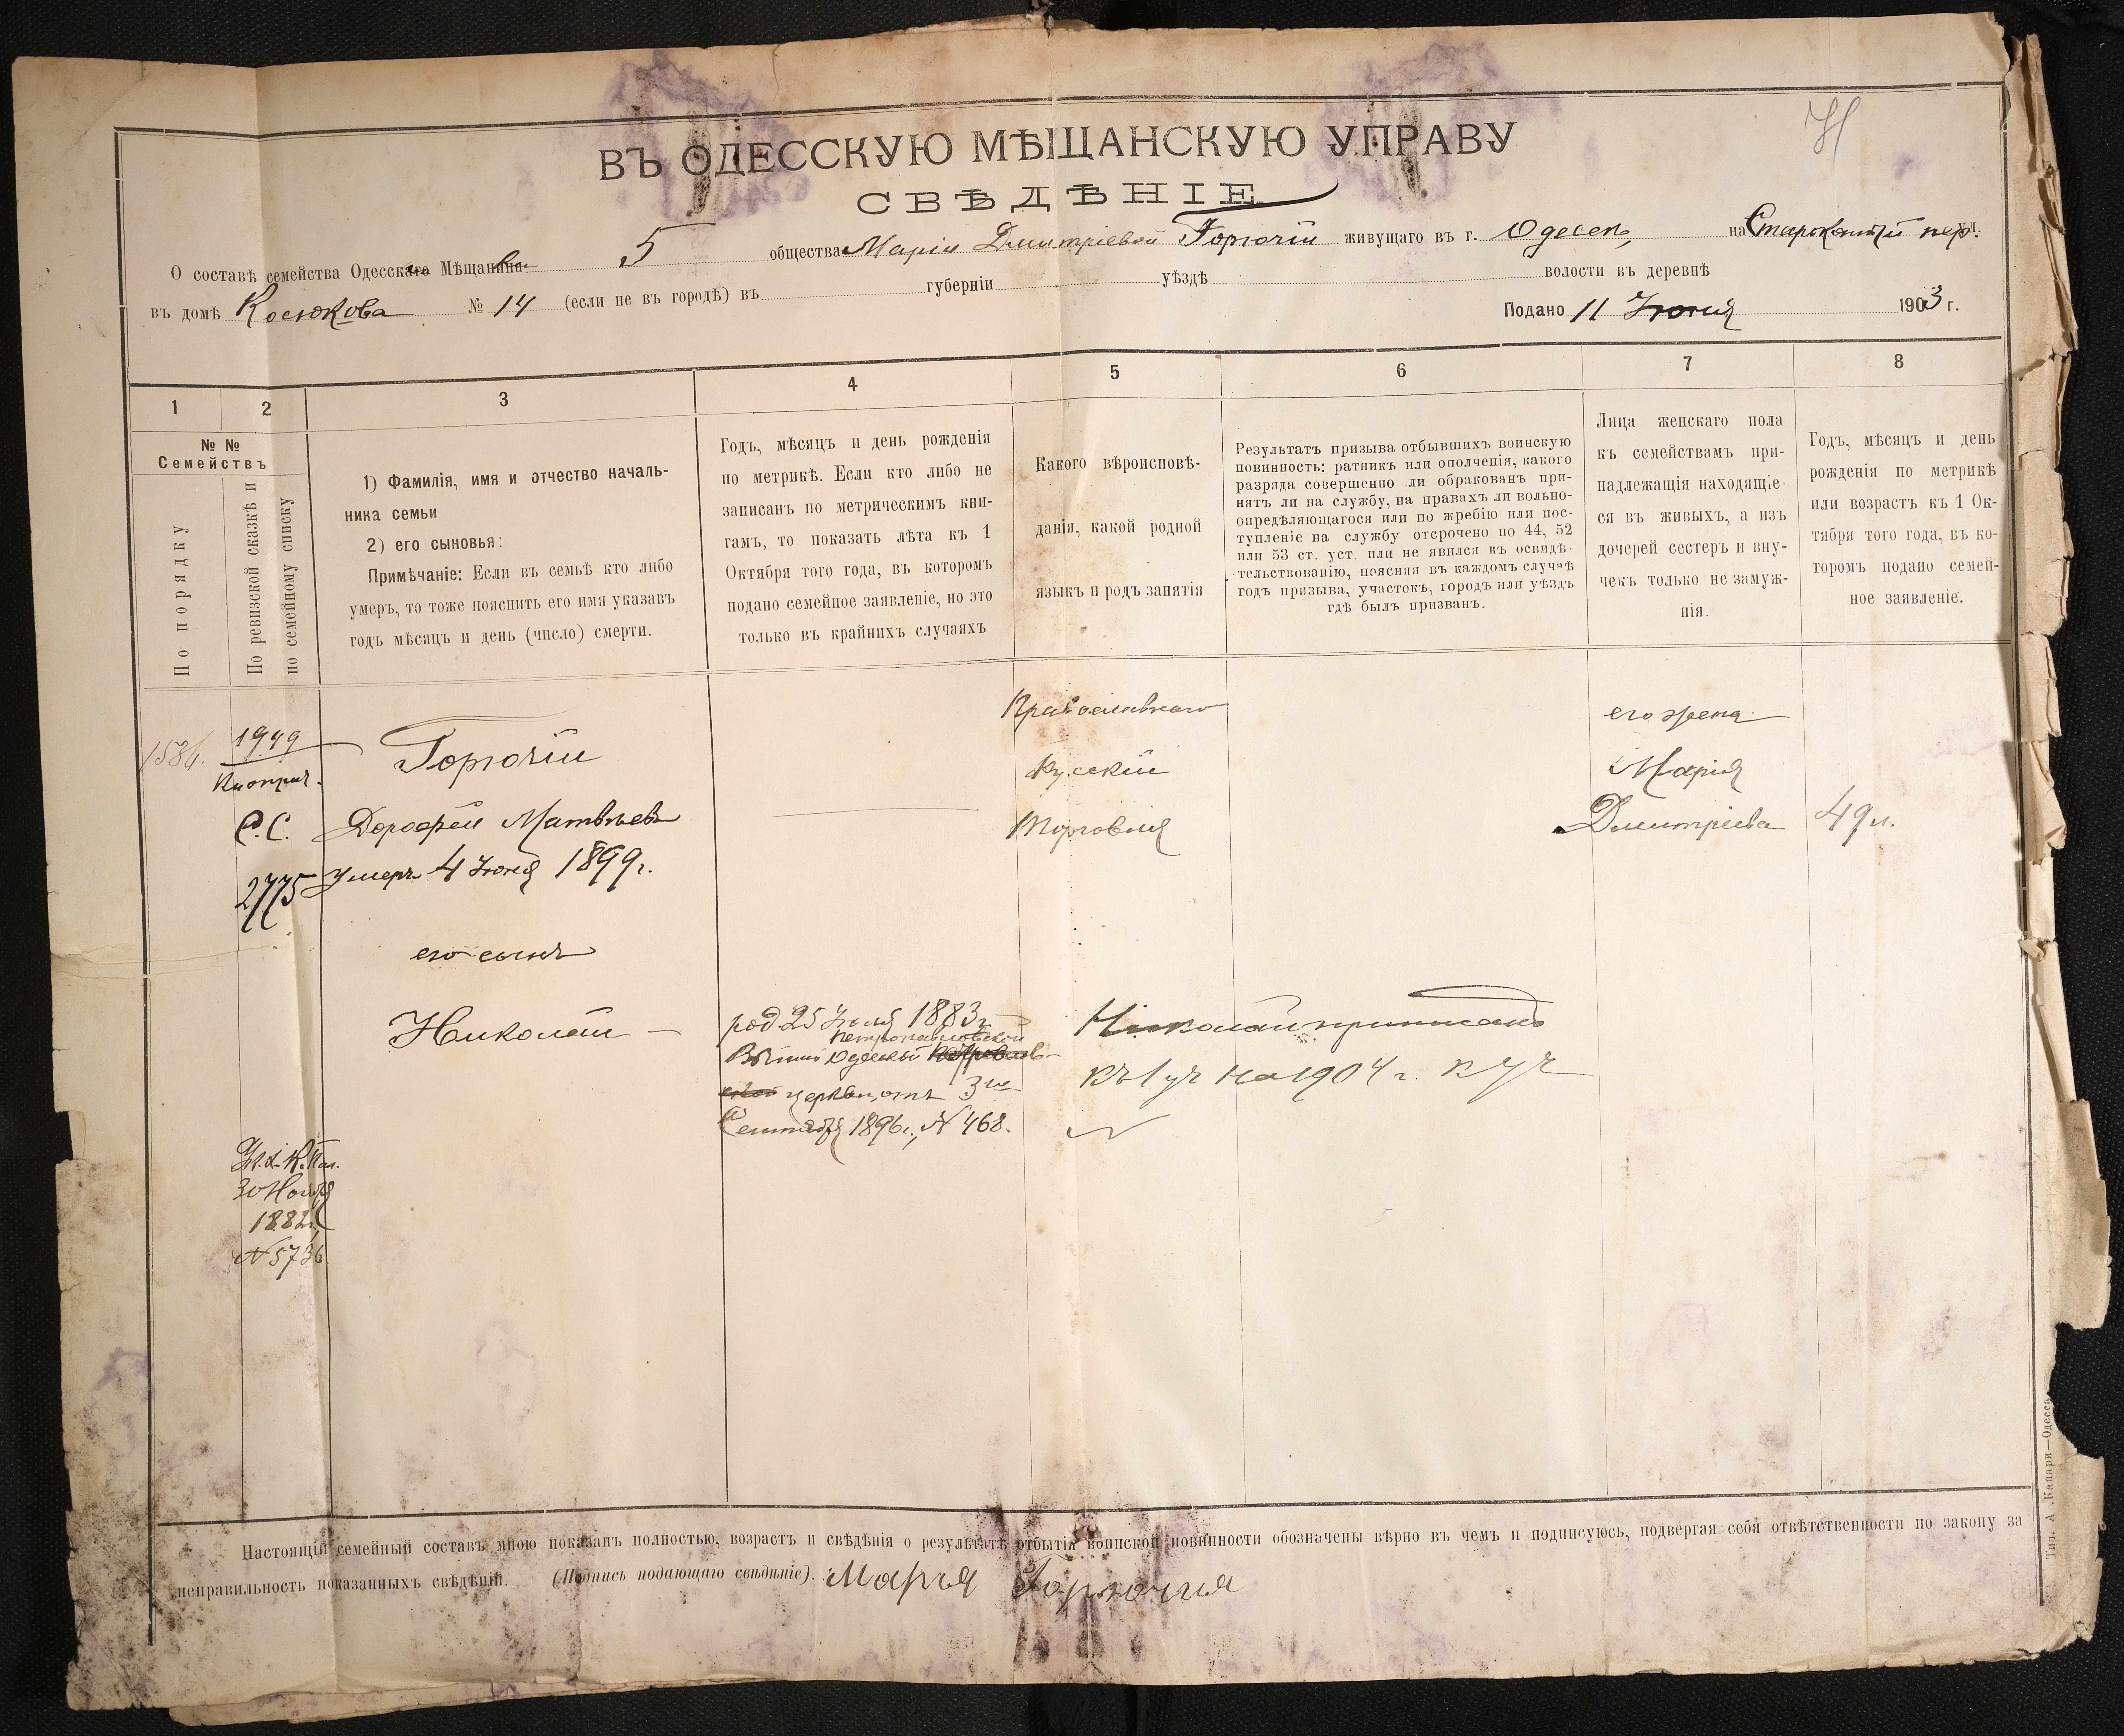 Н
ВЪ ОДЕССКУЮ МѢЩАНСКУЮ УПРАВУ
СВѢДѢНІЕ
О составѣ семейства Одесскаго Мѣщанина 5 общества Маріи Дмитріевой Горючій живущаго въ г. Одессѣ, на пер.
въ домѣ Косюкова № 14 (если не въ городѣ) въ губерніи уѣздѣ волости въ деревнѣ
Подано 11 Іюня 1903 г.
1 2 3 4 5 6 7 8
№ №
Семействъ
По порядку
По ревизской сказкѣ и
по семейному списку
1) Фамилія, имя и отчество началь-
ника семьи
2) его сыновья:
Примѣчаніе: Если въ семьѣ кто либо
умеръ, то тоже пояснить его имя указавъ
годъ мѣсяцъ и день (число) смерти.
Годъ, мѣсяцъ и день рожденія
по метрикѣ. Если кто либо не
записанъ по метрическимъ кни-
гамъ, то показать лѣта къ 1
Октября того года, въ которомъ
подано семейное заявленіе, но это
только въ крайнихъ случаяхъ
Какого вѣроисповѣ-
данія, какой родной
языкъ и родъ занятія
Результатъ призыва отбывшихъ воинскую
повинность: ратникъ или ополченія, какого
разряда совершенно ли обракованъ при-
нятъ ли на службу, на правахъ ли вольно-
опредѣляющагося или по жребію или пос-
тупленіе на службу отсрочено по 44, 52
или 53 ст. уст. или не явился къ освидѣ-
тельствованію, поясняя въ каждомъ случаѣ
годъ призыва, участокъ, городъ или уѣздъ
гдѣ былъ призванъ.
Лица женскаго пола
къ семействамъ при-
надлежащія находящіе-
ся въ живыхъ, а изъ
дочерей сестеръ и вну-
чекъ только не замуж-
нія.
Годъ, мѣсяцъ и день
рожденія по метрикѣ
или возрастъ къ 1 Ок-
тября того года, въ ко-
торомъ подано семей-
ное заявленіе.
1949
С.С.
2775
Горючій
Дорофей Матвѣевъ
умеръ 4 Іюня 1899 г.
его сынъ
Николай —
род. 25 1883 г.
Петропавловской
Одесской
церкви, отъ 3го
Сентября 1896 г., № 468.
Православнаго
Русскій
Торговля
Николай приписанъ
къ 1 уч на 1904 г.
его жена
Марія
Дмитріева
49 л.
30 Ноября
1882 г.
№ 5736
Настоящій семейный составъ мною показанъ полностью, возрастъ и свѣдѣнія о результатѣ отбытія воинской повинности обозначены вѣрно въ чемъ и подписуюсь, подвергая себя отвѣтственности по закону за
неправильность показанныхъ свѣдѣній. (Подпись подающаго свѣдѣніе). Марья Горючия
Тип. А. Капари—Одесса